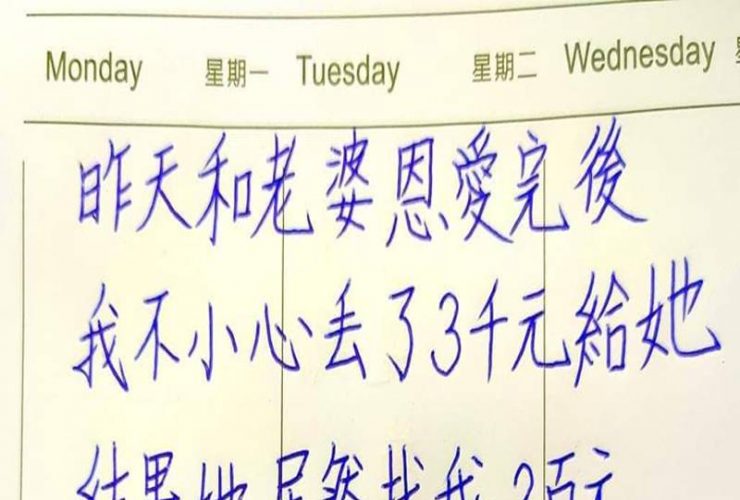 Monday 星期一 Tuesday 星期二 Wednesday
昨天和老婆恩愛完後
我不小心丢了3千元給她
結果她居然找我2百元